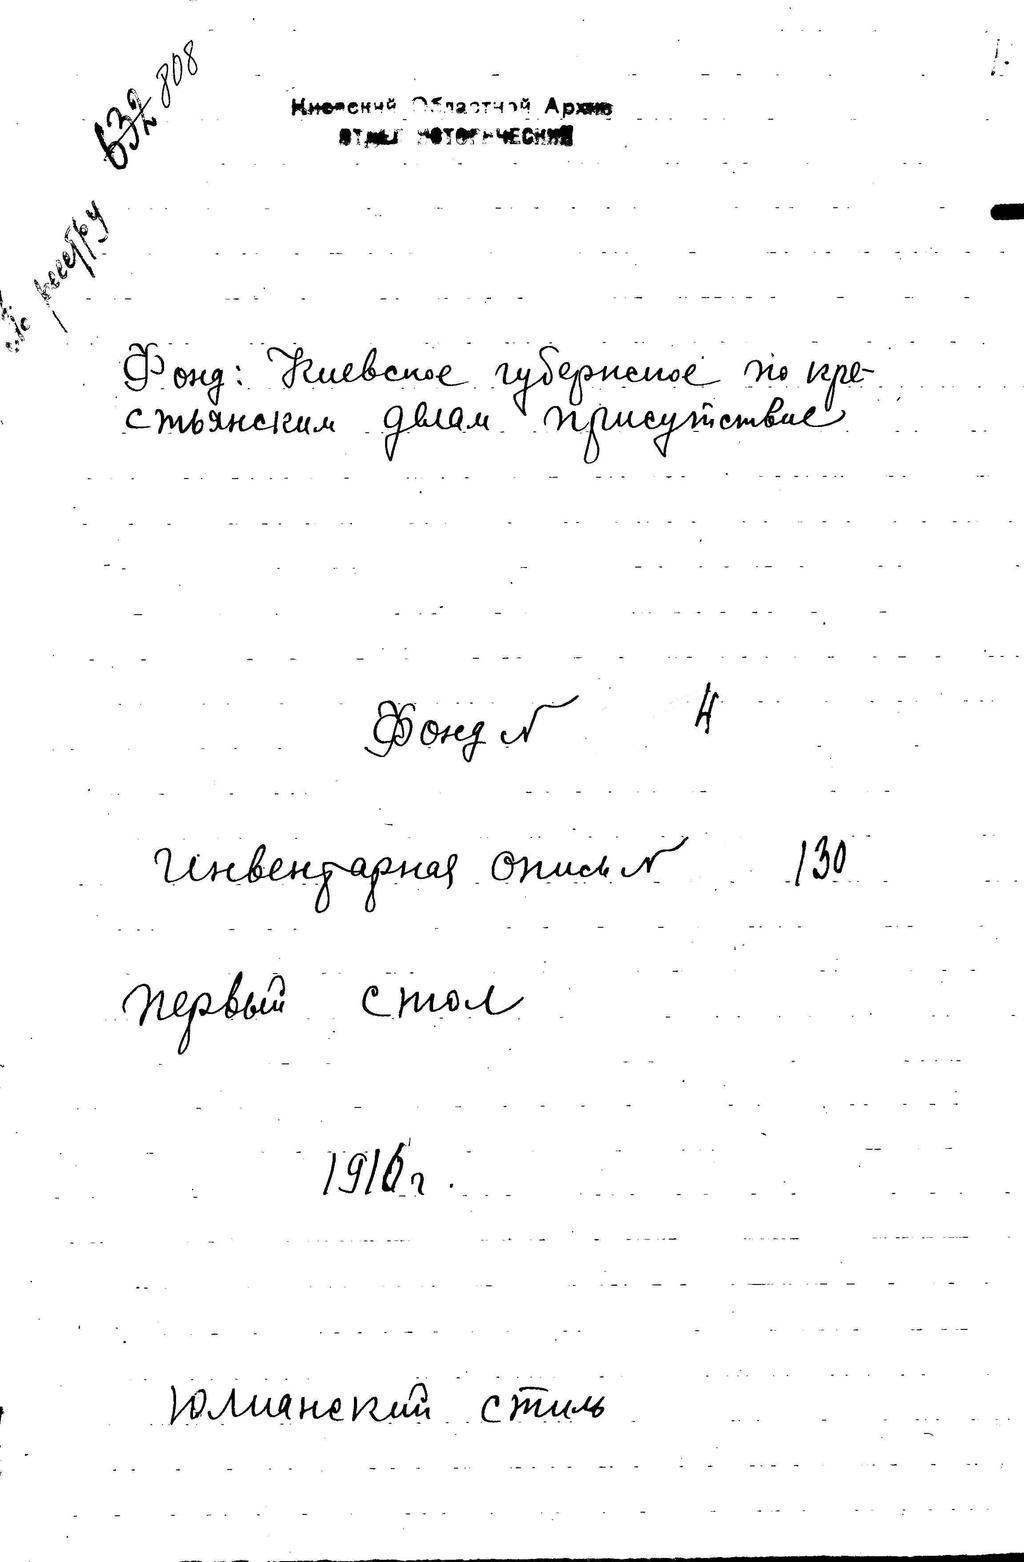 808
632
1.
Киевский Областной Архив
ОТДЕЛ ИСТОРИЧЕСКИЙ
реестру
Фонд: Киевское губернское по кре-
стьянским делам присутствие
Фонд № 4
Инвентарная опись № 130
первый стол
1916 г.
Юлианский стиль